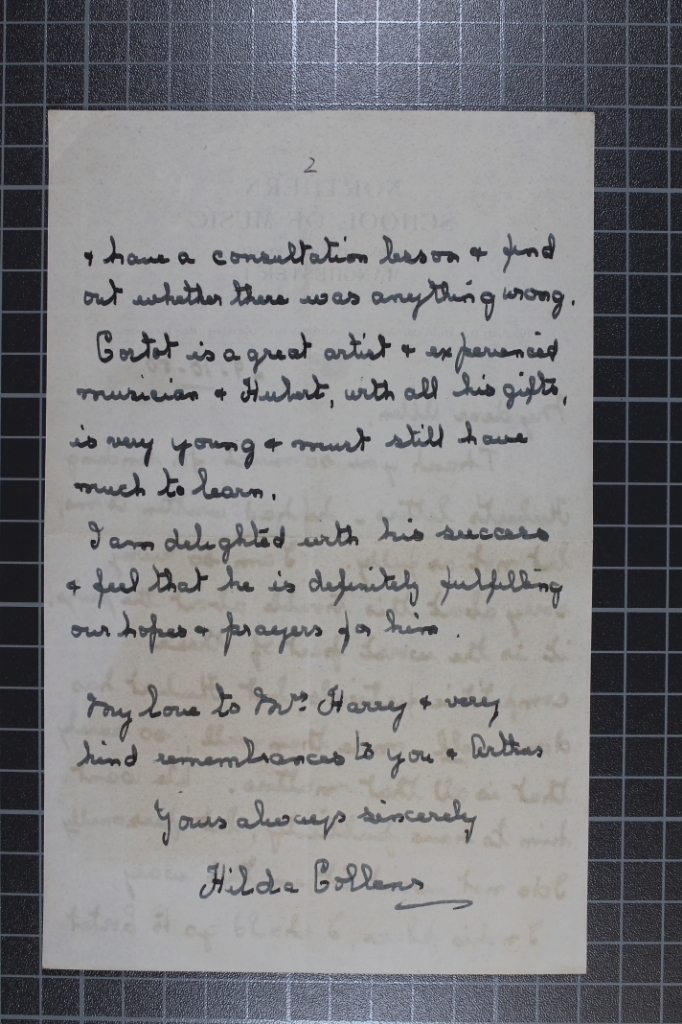 2
& have a consultation lesson & find
out whether there was anything wrong.
Cortot is a great artist & experienced
musician & Hubert, with all his gifts,
is very young & must still have
much to learn.
I am delighted with his success
& feel that he is definitely fulfilling
our hopes & prayers for him.
My love to Mrs. Harry & very
kind remembrances to you & Arthur
Yours always sincerely
Hilda Collens